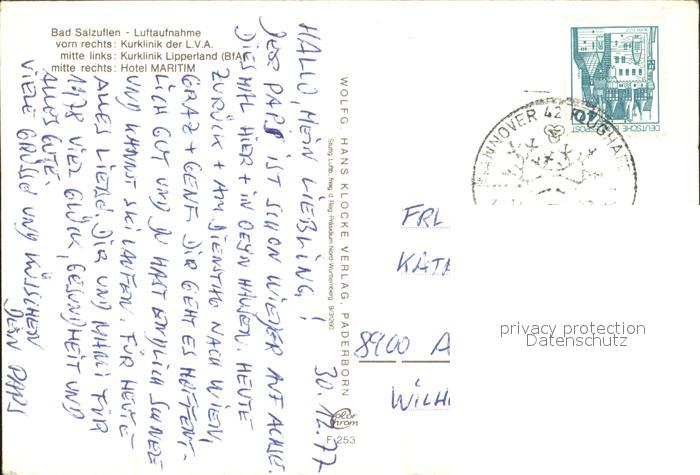 Bad Salzuflen - Luftaufnahme
vorn rechts: Kurklinik der L.V.A.
mitte links: Kurklinik Lipperland (BfA)
mitte rechts: Hotel MARITIM
30.12.77
HALLO, MEIN LIEBLING!
DEIN PAPS IST SCHON WIEDER AUF ACHSE.
DIESMAL HIER + IN OEYNHAUSEN. HEUTE
ZURÜCK + AM DIENSTAG NACH WIEN,
GRAZ + GENF. DIR GEHT ES HOFFENT-
LICH GUT UND DU HAST ENDLICH SCHNEE
UND KANNST SKILAUFEN. FÜR HEUTE
ALLES LIEBE, DIR UND MAMI FÜR
1978 VIEL GLÜCK, GESUNDHEIT UND
ALLES GUTE.
VIELE GRÜSSE UND KÜSSCHEN
DEIN PAPS
WOLFG. HANS KLOCKE VERLAG, PADERBORN
Stuttg. Luftb. freig. d. Reg.-Präsidium Nord-Württemberg 9/31260
color
chrom
F 253
DEUTSCHE BUNDESPOST
HANNOVER 42 FLUGHAFEN
FRL
KATA
8900 A
WILH
privacy protection
Datenschutz